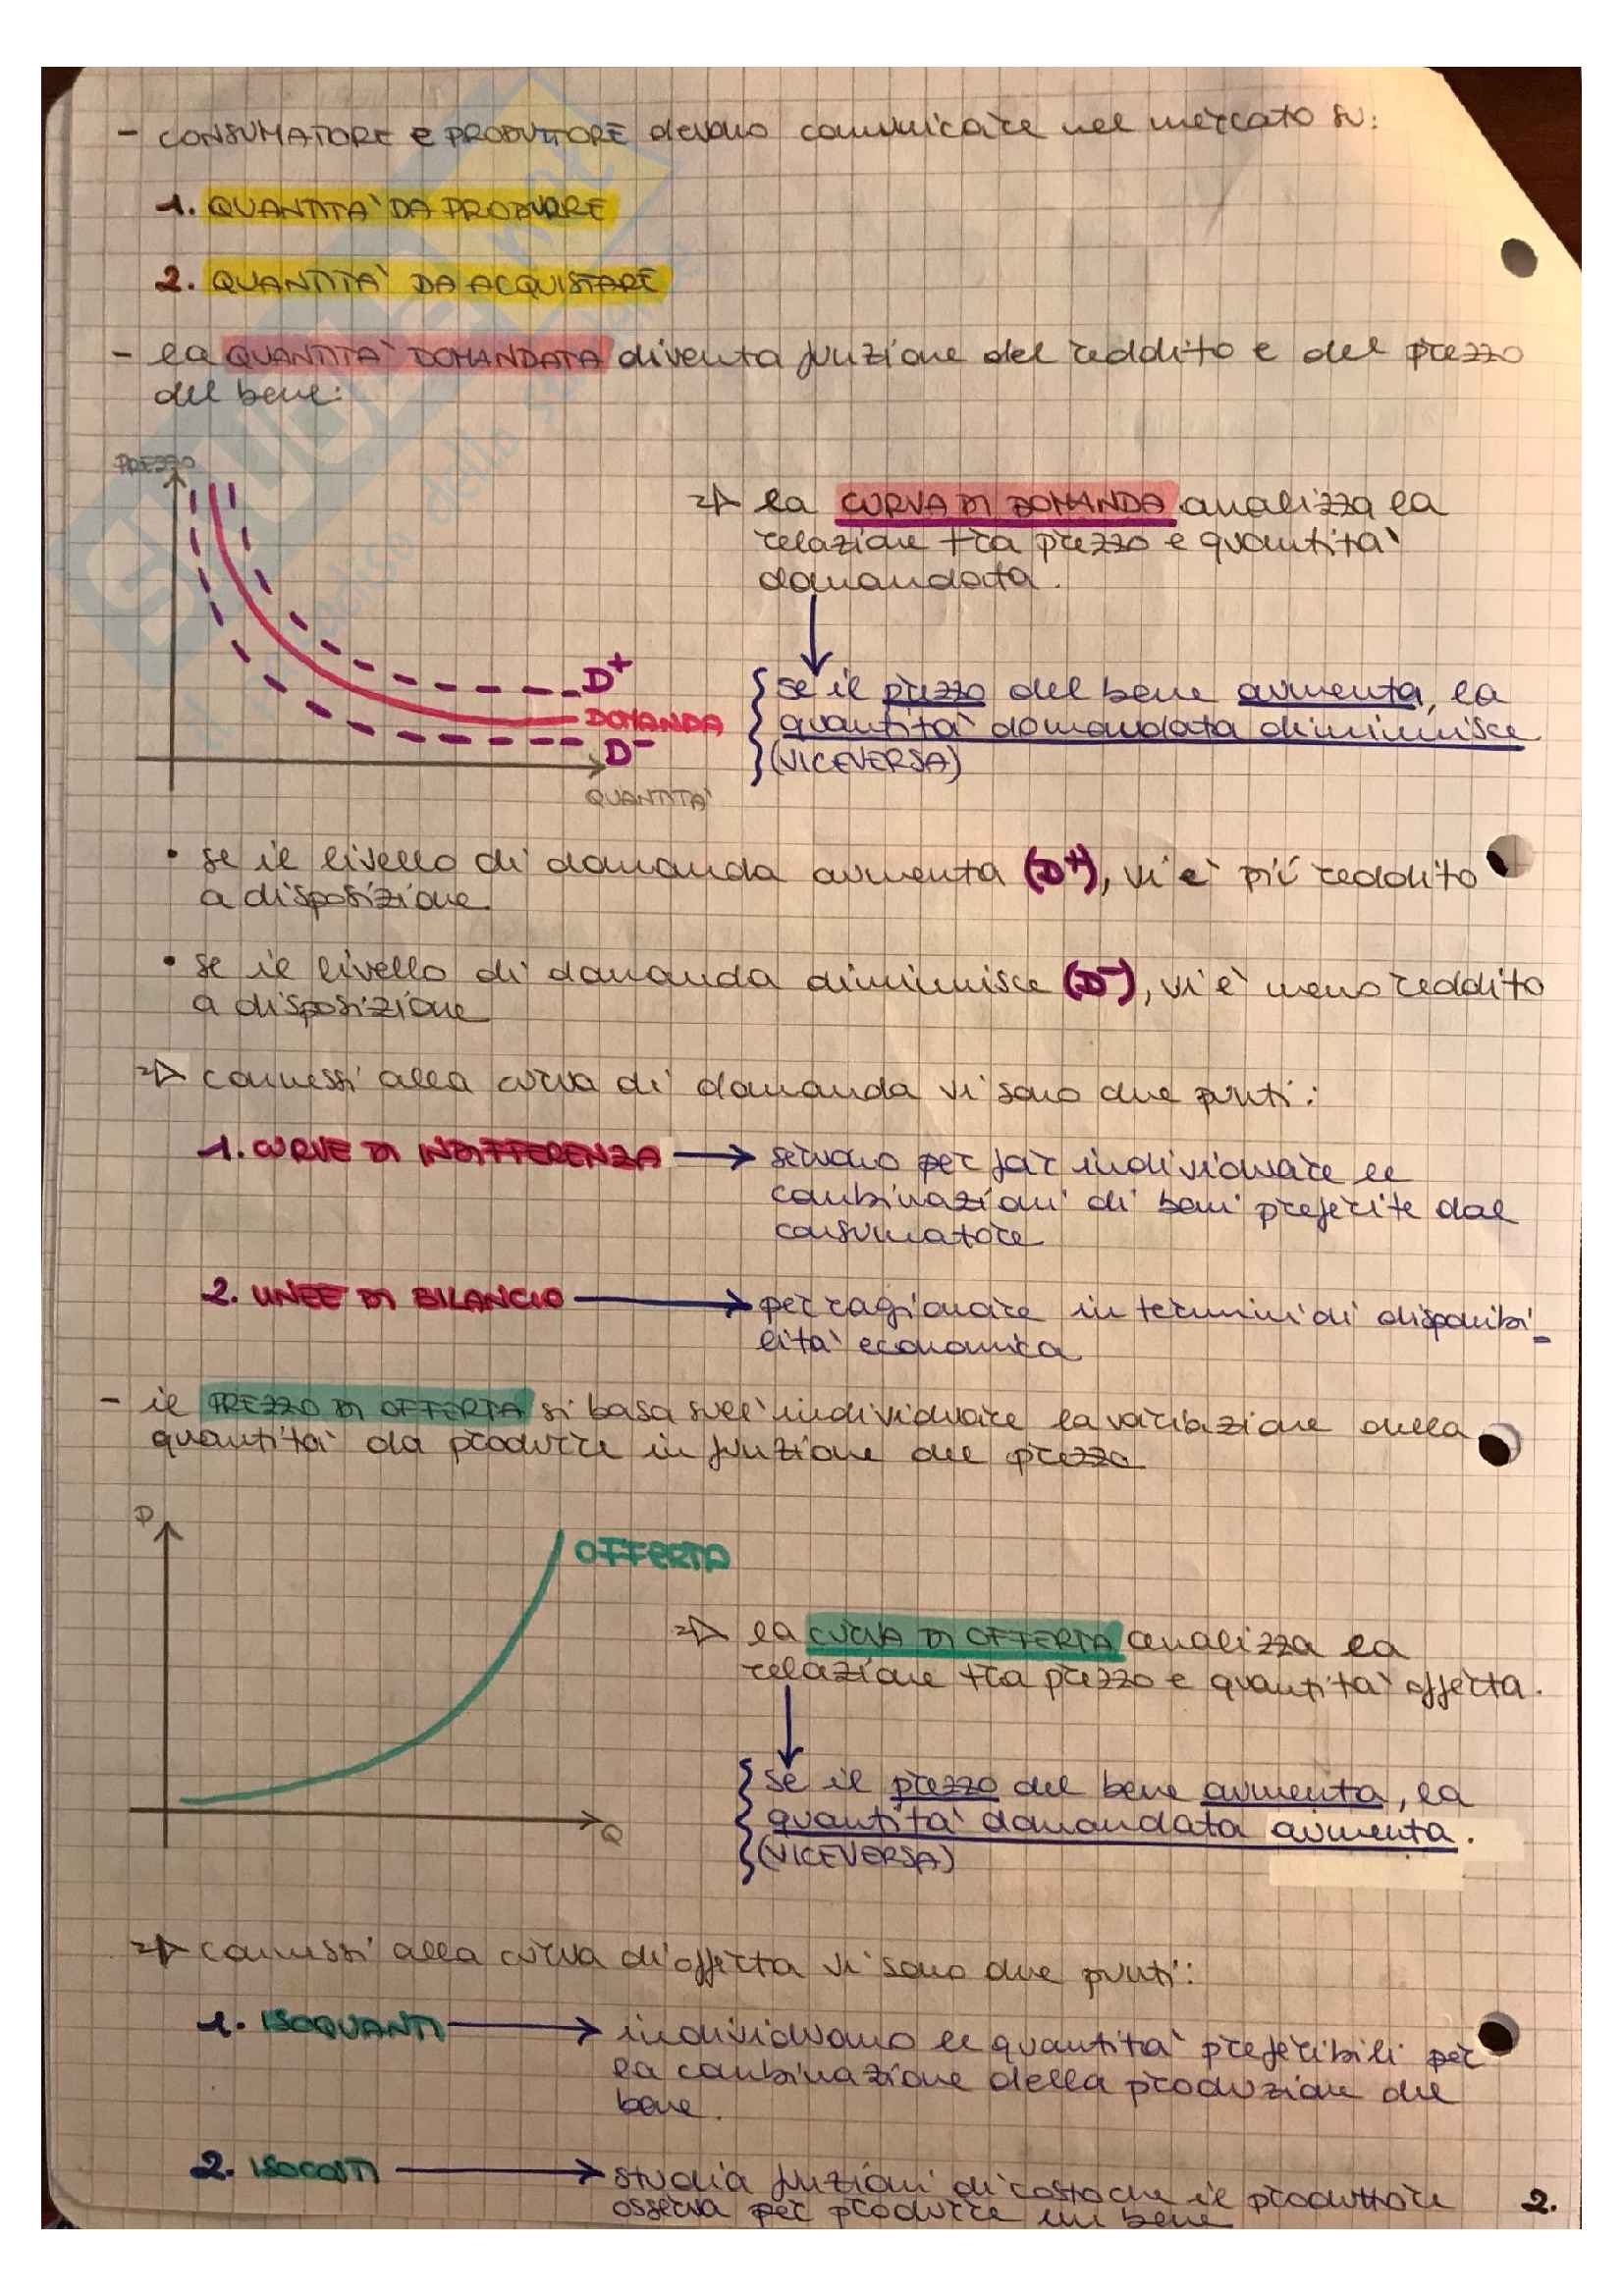 - CONSUMATORE E PRODUTTORE devono comunicare nel mercato su:
1. QUANTITA' DA PRODURRE
2. QUANTITA' DA ACQUISTARE
- la QUANTITA' DOMANDATA diventa funzione del reddito e del prezzo
del bene:
PREZZO
⇒ la CURVA DI DOMANDA analizza la
relazione tra prezzo e quantità
domandata.
D+
DOMANDA
D-
QUANTITA'
se il prezzo del bene aumenta, la
quantità domandata diminuisce
(VICEVERSA)
• se il livello di domanda aumenta (D+), vi è più reddito
a disposizione
• se il livello di domanda diminuisce (D-), vi è meno reddito
a disposizione
⇒ connessi alla curva di domanda vi sono due punti:
1. CURVE DI INDIFFERENZA → servono per far individuare le
combinazioni di beni preferite dal
consumatore
2. LINEE DI BILANCIO → per ragionare in termini di disponibi-
lità economica
- il PREZZO DI OFFERTA si basa sull'individuare la variazione della
quantità da produrre in funzione del prezzo
P
OFFERTA
⇒ la CURVA DI OFFERTA analizza la
relazione tra prezzo e quantità offerta.
se il prezzo del bene aumenta, la
quantità domandata aumenta.
(VICEVERSA)
Q
⇒ connessi alla curva di offerta vi sono due punti:
1. ISOQUANTI → individuano le quantità preferibili per
la combinazione della produzione del
bene.
2. ISOCOSTI → studia funzioni di costo che il produttore
osserva per produrre un bene
2.